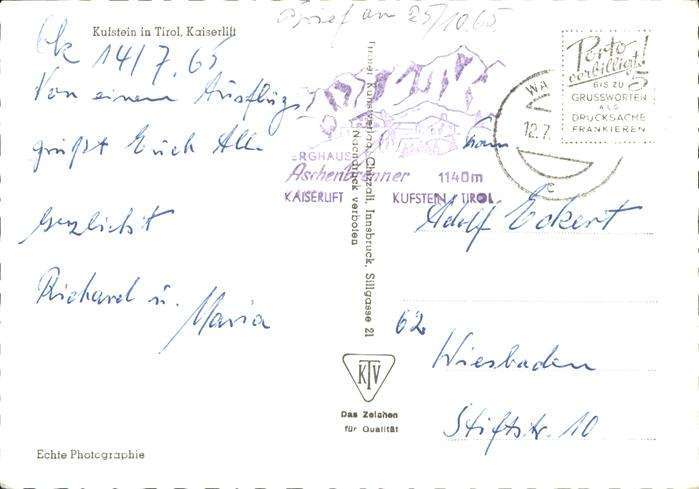 Brief an 25/10.65
Kufstein in Tirol, Kaiserlift
14/7.65
Von einem Ausflug
grüßt Euch Alle
herzlichst
Richard u.
Maria
Echte Photographie
ERGHAUS
Aschenbrenner 1140m
KAISERLIFT KUFSTEIN TIROL
Tiroler Kunstverlag Chizzali, Innsbruck, Sillgasse 21
Nachdruck verboten
KTV
Das Zeichen
für Qualität
WA
12.7
c
Porto
verbilligt!
5
BIS ZU
GRUSSWORTEN
ALS
DRUCKSACHE
FRANKIEREN
Herrn
Adolf Eckert
62
Wiesbaden
Stiftstr. 10